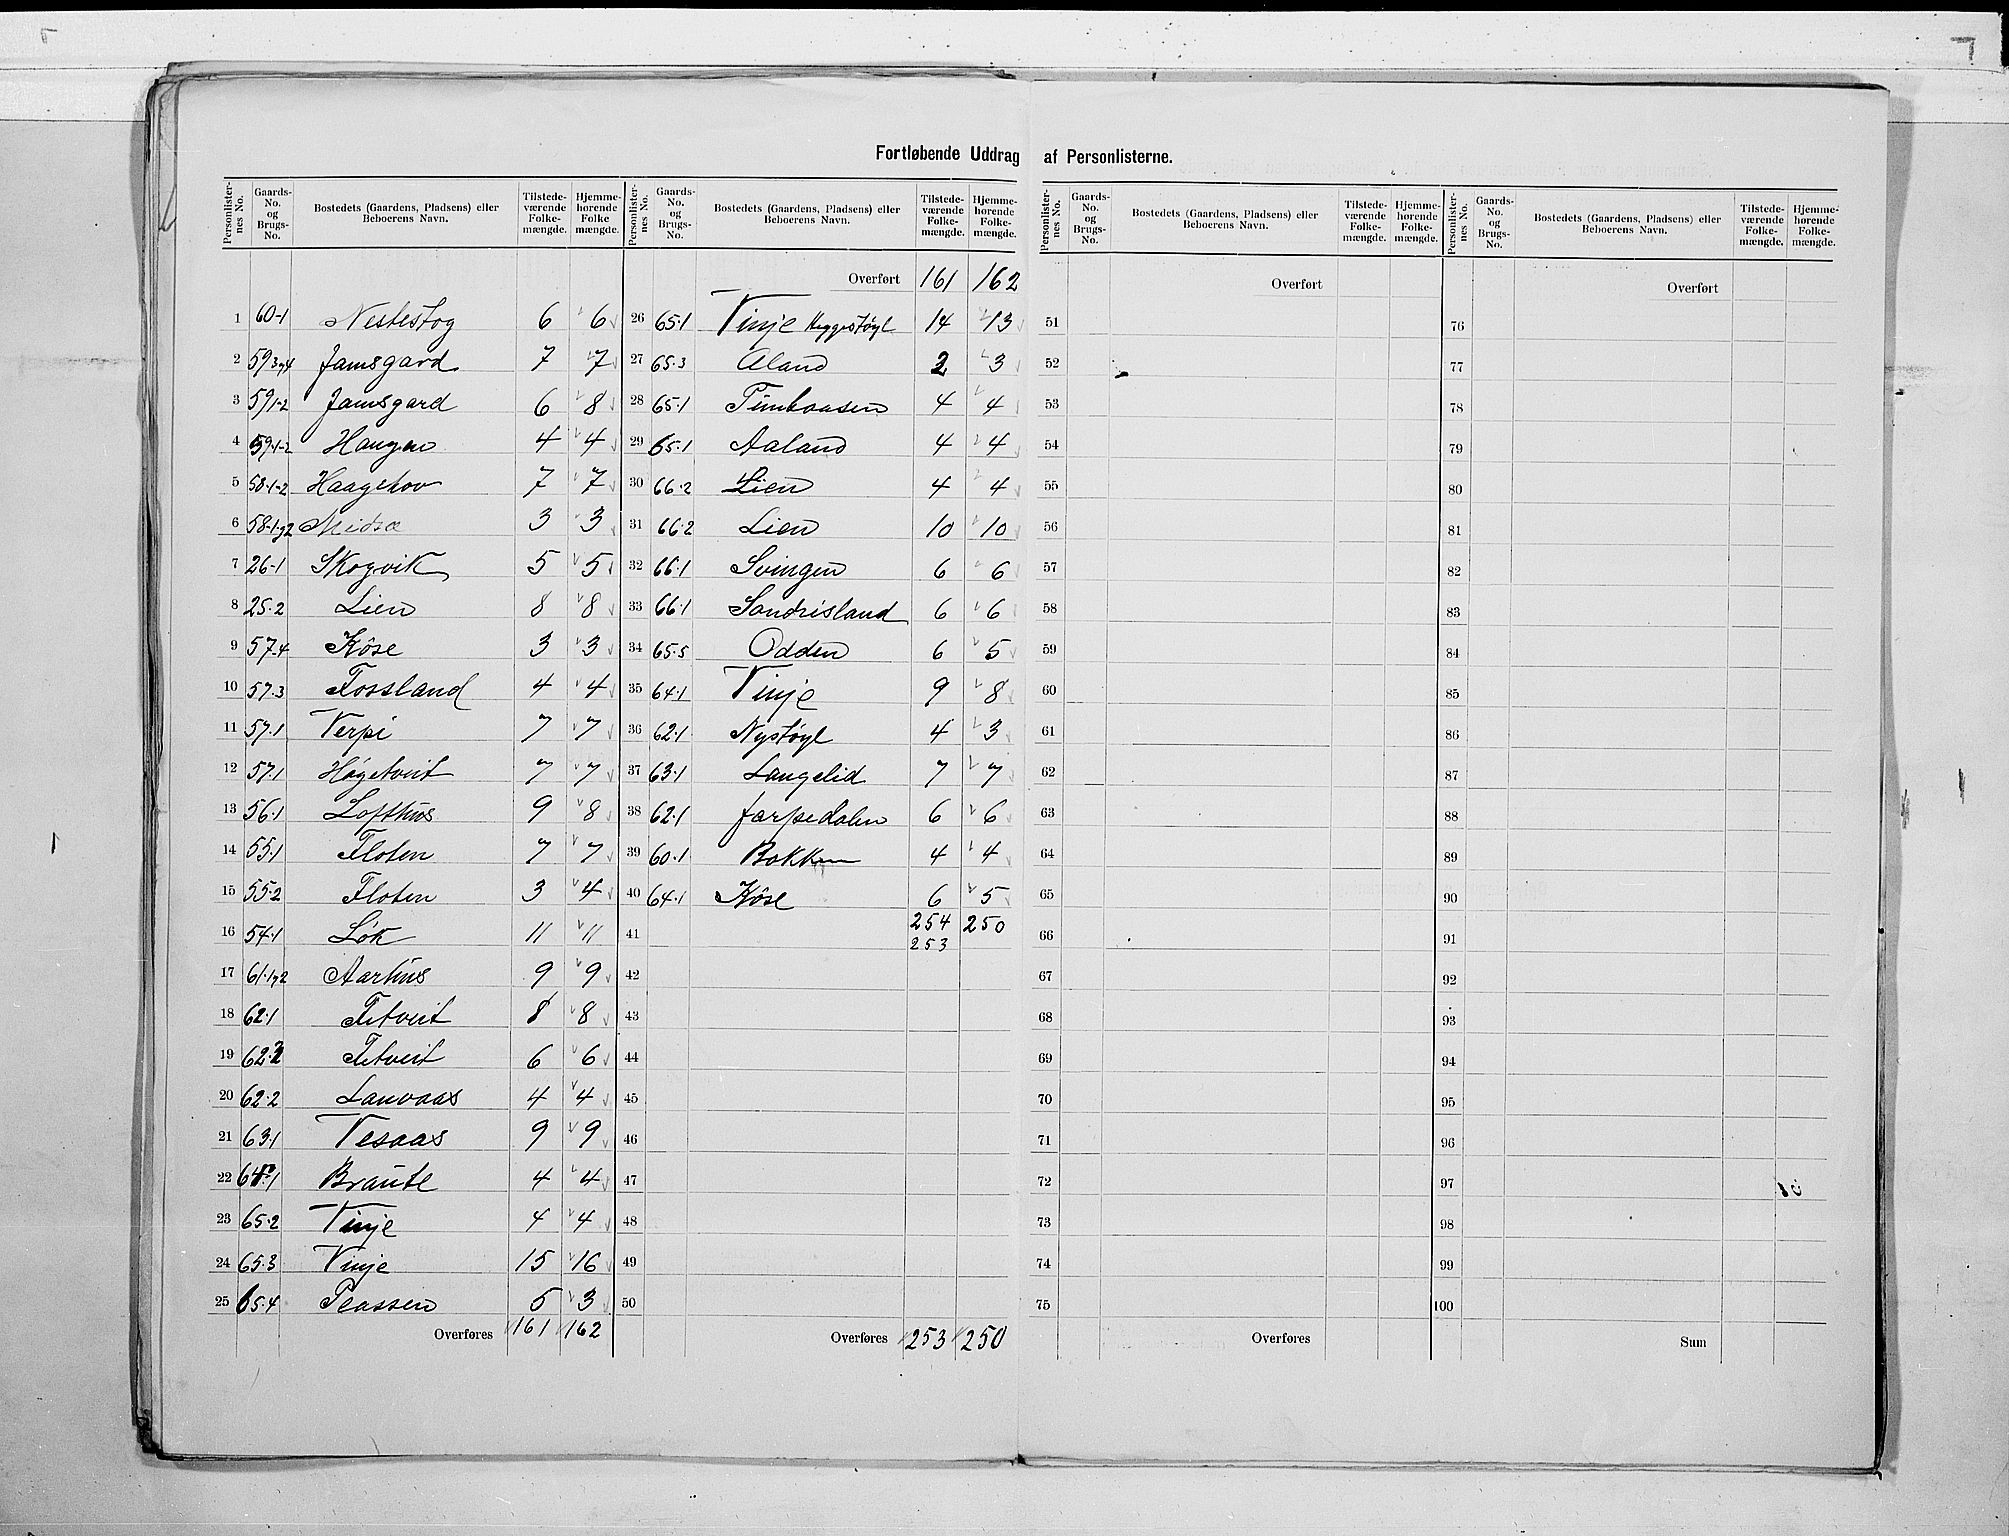 Fortløbende Uddrag af Personlisterne.
Personlisternes No. Gaards-No. og Brugs-No. Bostedets (Gaardens, Pladsens) eller Beboerens Navn. Tilstedeværende Folkemængde. Hjemmehørende Folkemængde.
1 60-1 Nestestog 6 6
2 59 3 og 4 Jamsgard 7 7
3 59 1-2 Jamsgard 6 8
4 59-1-2 Haugen 4 4
5 58-1-2 Haagehov 7 7
6 58-1 og 2 Midsæ 3 3
7 26-1 Skogvik 5 5
8 25-2 Lien 8 8
9 57-4 Kôse 3 3
10 57-3 Fossland 4 4
11 57-1 Verpi 7 7
12 57-1 Høgetveit 7 7
13 56-1 Lofthus 9 8
14 55-1 Floten 7 7
15 55-2 Floten 3 4
16 54-1 Lôk 11 11
17 61-1 og 2 Aarhus 9 9
18 62-1 Fetveit 8 8
19 62-2 Fetveit 6 6
20 62-2 Lauvaas 4 4
21 63-1 Vesaas 9 9
22 Braute 4 4
23 65-2 Vinje 4 4
24 65-3 Vinje 15 16
25 65-4 Plassen 5 3
Overføres 161 162
Personlisternes No. Gaards-No. og Brugs-No. Bostedets (Gaardens, Pladsens) eller Beboerens Navn. Tilstedeværende Folkemængde. Hjemmehørende Folkemængde.
Overført 161 162
26 65-1 Vinje Heggestøyl 14 13
27 65-3 Aland 2 3
28 65-1 4 4
29 65-1 Aaland 4 4
30 66-2 Lien 4 4
31 66-2 Lien 10 10
32 66-1 Svingen 6 6
33 66-1 Sondrisland 6 6
34 65-5 Odden 6 5
35 64-1 Vinje 9 8
36 62-1 Nystøyl 4 3
37 63-1 Langelid 7 7
38 62-1 Jarpedalen 6 6
39 60-1 Bakken 4 4
40 64-1 Kôse 6 5
41 254 250
253
42
43
44
45
46
47
48
49
50
Overføres 253 250
Personlisternes No. Gaards-No. og Brugs-No. Bostedets (Gaardens, Pladsens) eller Beboerens Navn. Tilstedeværende Folkemængde. Hjemmehørende Folkemængde.
Overført
51
52
53
54
55
56
57
58
59
60
61
62
63
64
65
66
67
68
69
70
71
72
73
74
75
Overføres
Personlisternes No. Gaards-No. og Brugs-No. Bostedets (Gaardens, Pladsens) eller Beboerens Navn. Tilstedeværende Folkemængde. Hjemmehørende Folkemængde.
Overført
76
77
78
79
80
81
82
83
84
85
86
87
88
89
90
91
92
93
94
95
96
97
98
99
100
Sum